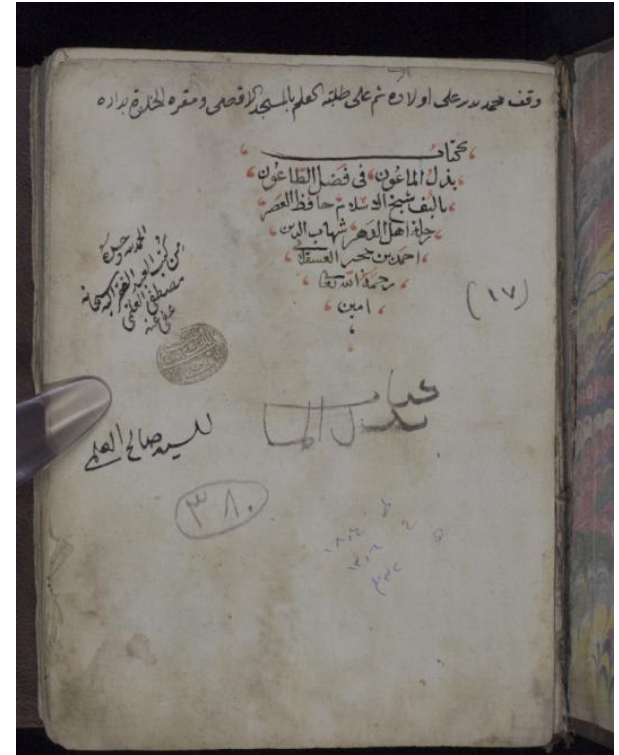 وقف محمد بدر على اولاده ثم على طلبة العلم بالمسجد الاقصى ومقره الخلوة بداره
كتاب
بذل الماعون في فضل الطاعون
تاليف شيخ الاسلام حافظ العصر
رحلة اهل الدهر شهاب الدين
احمد بن حجر العسقلاني
رحمه الله تعالى
امين
(١٧)
الحمد لله وحده
من كتب العبد الفقير اليه سبحانه
مصطفى العلمي
عفي عنه
كتاب
بذل الما
للسيد صالح العلمي
٣٨٠